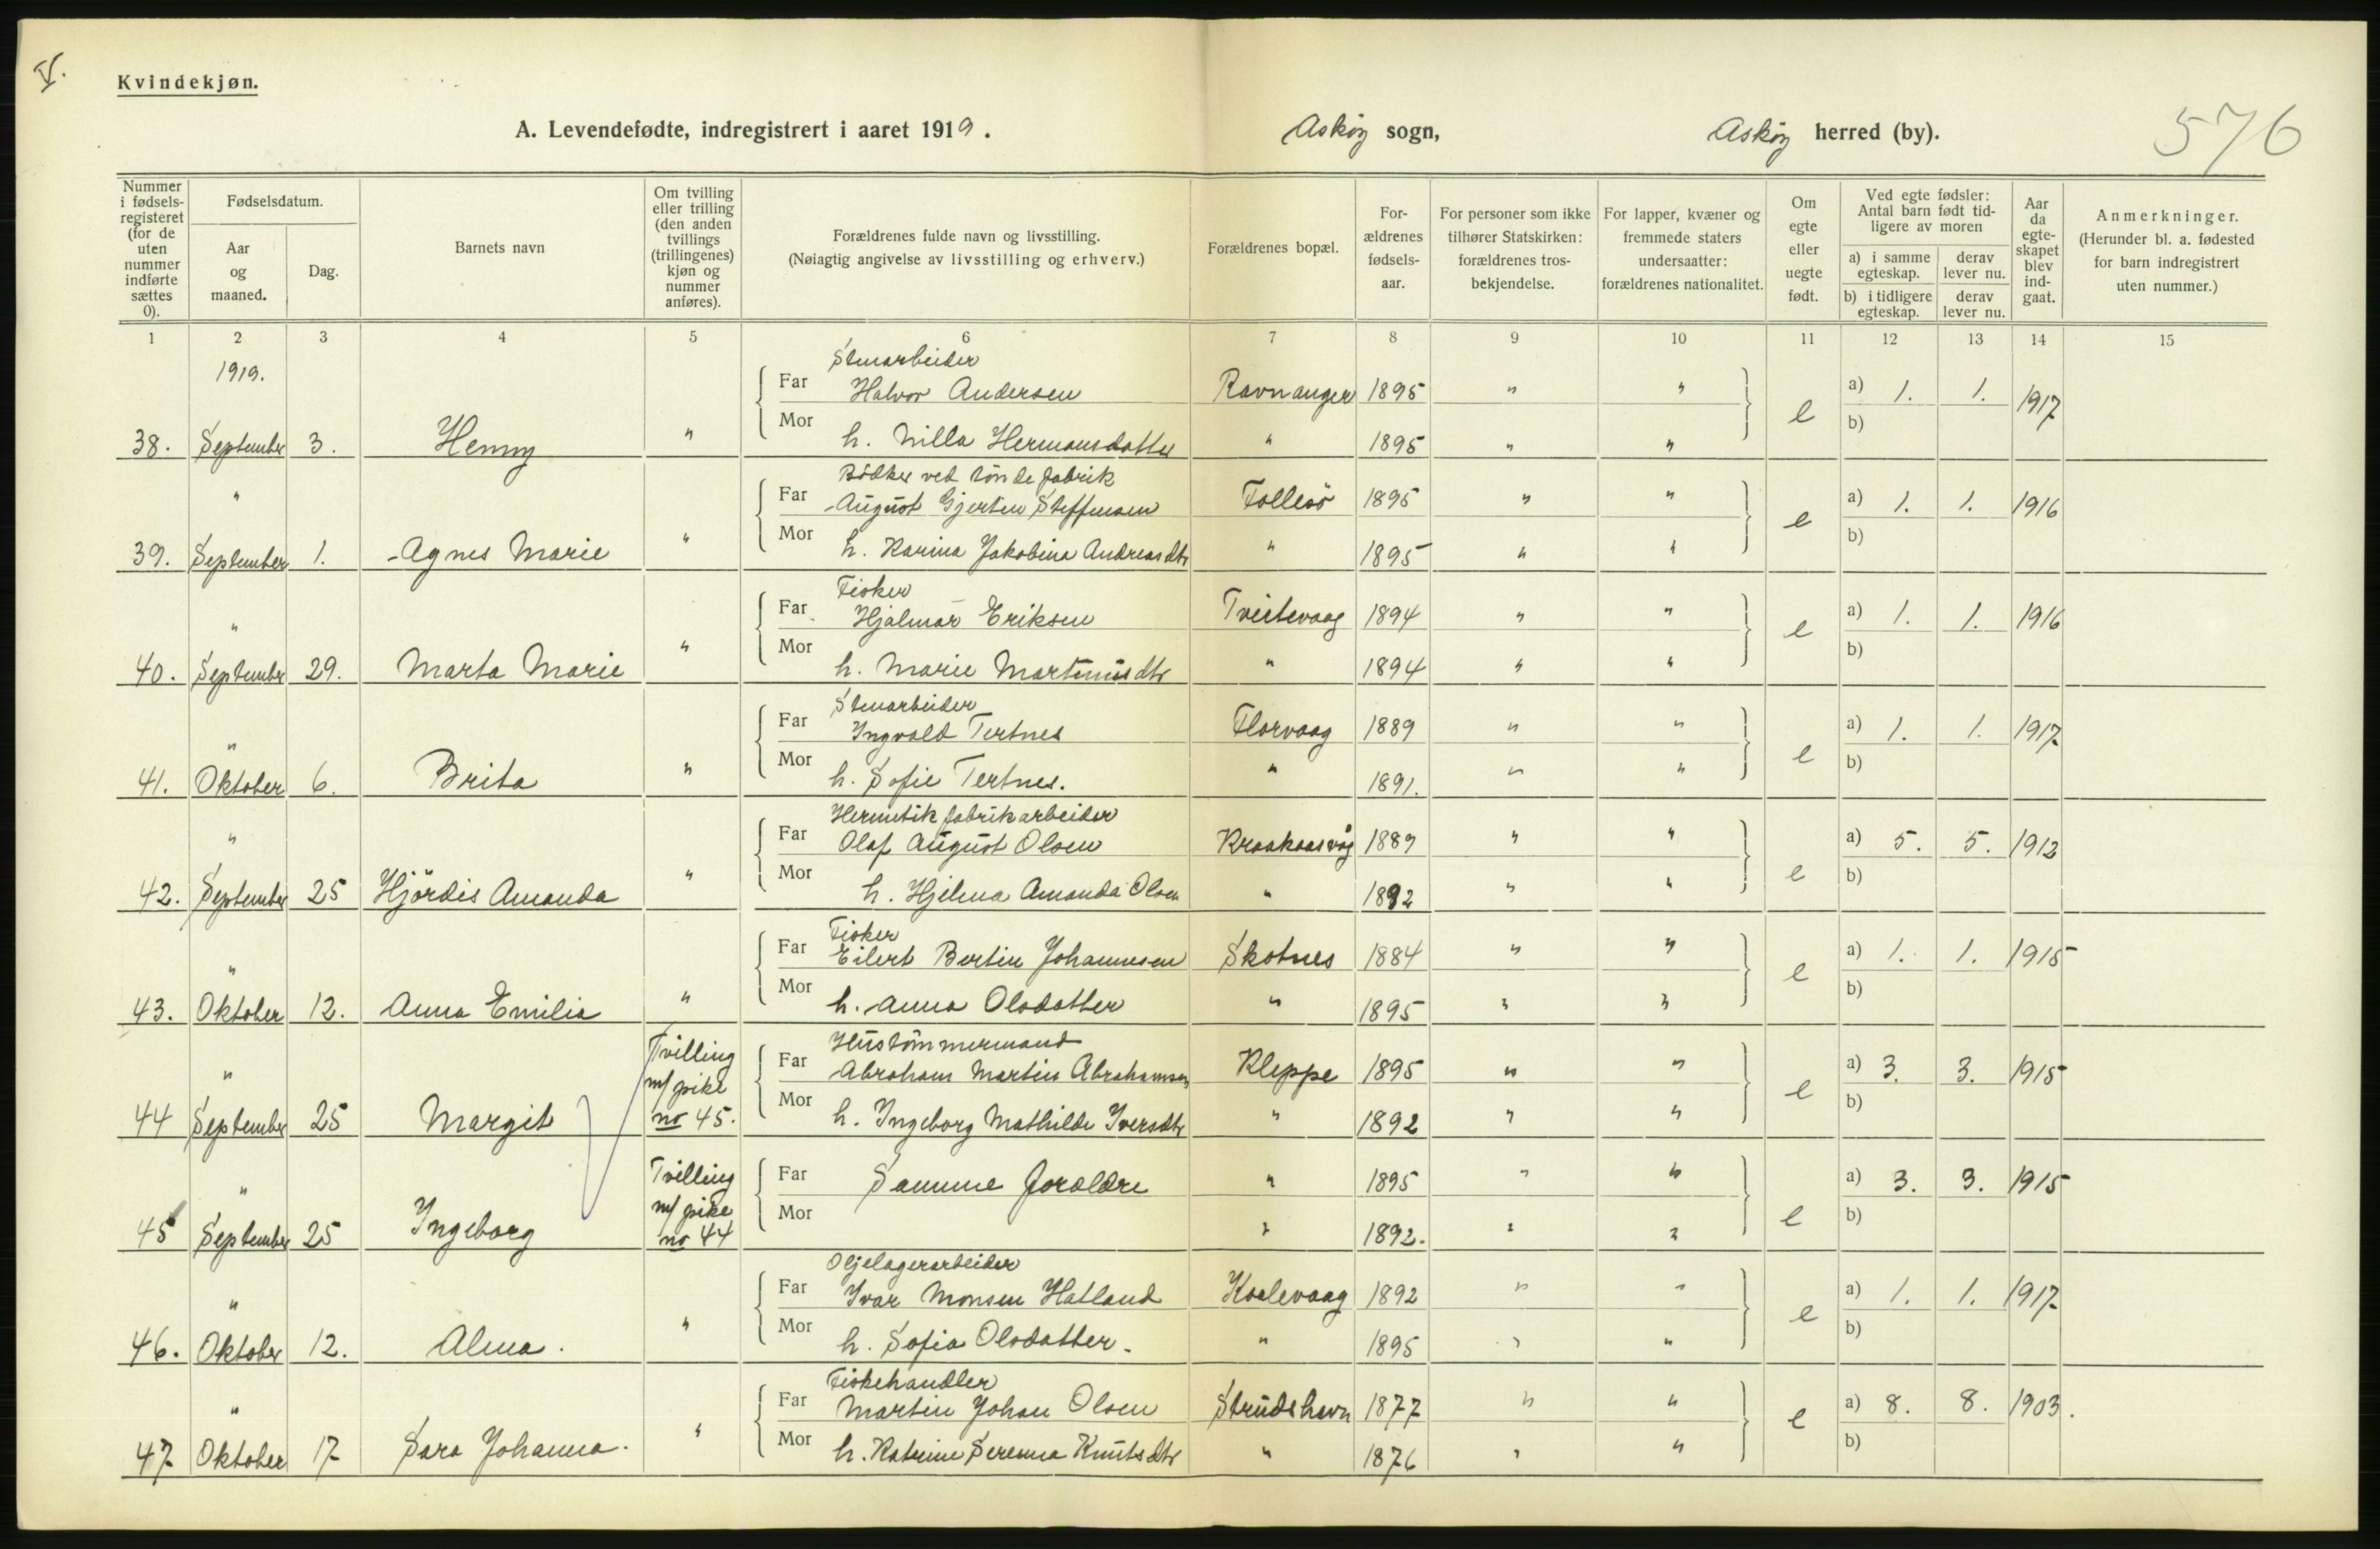 V.
Kvindekjøn.
A. Levendefødte, indregistrert i aaret 1919. Askøy sogn, Askøy herred (by). 576
Nummer i fødsels-registeret (for de uten nummer indførte sættes 0).
Fødselsdatum.
Aar og maaned.
Dag.
Barnets navn
Om tvilling eller trilling (den anden tvillings (trillingenes) kjøn og nummer anføres).
Forældrenes fulde navn og livsstilling.
(Nøiagtig angivelse av livsstilling og erhverv.)
Forældrenes bopæl.
For-ældrenes fødsels-aar.
For personer som ikke tilhører Statskirken: forældrenes tros-bekjendelse.
For lapper, kvæner og fremmede staters undersaatter: forældrenes nationalitet.
Om egte eller uegte født.
Ved egte fødsler: Antal barn født tid-ligere av moren
a) i samme egteskap. derav lever nu.
b) i tidligere egteskap. derav lever nu.
Aar da egte-skapet blev ind-gaat.
Anmerkninger.
(Herunder bl. a. fødested for barn indregistrert uten nummer.)
1 2 3 4 5 6 7 8 9 10 11 12 13 14 15
1919. Stenarbeider
Far Halvor Andersen Ravnanger 1895 " " a) 1. 1. 1917
38. September 3. Henny " Mor h. Nilla Hermansdatter " 1895 " " e b)
" Bödker ved töndefabrik
Far August Gjerten Steffensen Follesö 1895 " " a) 1. 1. 1916
39. September 1. Agnes Marie " Mor h. Karina Jakobina Andreasdtr " 1895 " " e b)
" Fisker
Far Hjalmar Eriksen Tveitevaag 1894 " " a) 1. 1. 1916
40. September 29. Marta Marie " Mor h. Marie Martinusdtr " 1894 " " e b)
" Stenarbeider
Far Ingvald Tertnes Florvaag 1889 " " a) 1. 1. 1917
41. Oktober 6. Brita " Mor h. Sofie Tertnes. " 1891. " " e b)
" Hermetikfabrikarbeider
Far Olaf August Olsen Kraakaasvåg 1889 " " a) 5. 5. 1912
42. September 25 Hjördis Amanda " Mor h. Hjelma Amanda Olsen " 1892 " " e b)
" Fisker
Far Eilert Bertin Johannesen Skotnes 1884 " " a) 1. 1. 1915
43. Oktober 12. Anna Emilia " Mor h. Anna Olsdatter " 1895 " " e b)
" Tvilling Hustömmermand
m/ pike Far Abraham Martin Abrahamsen Kleppe 1895 " " a) 3. 3. 1915
44 September 25 Margit no 45. Mor h. Ingeborg Mathilde Iversdtr " 1892 " " e b)
" Tvilling Far Samme foreldre " 1895 " " a) 3. 3. 1915
m/ pike
45 September 25 Ingeborg no 44 Mor " 1892. " " e b)
" Oljelagerarbeider
Far Ivar Monsen Hatland Kollevaag 1892 " " a) 1. 1. 1917
46. Oktober 12. Alma. " Mor h. Sofia Olsdatter. " 1895 " " e b)
" Fiskehandler
Far Martin Johan Olsen Strudshavn 1877 " " a) 8. 8. 1903.
47 Oktober 17 Sara Johanna. " Mor h. Katrine Serenna Knutsdtr " 1876 " " e b)